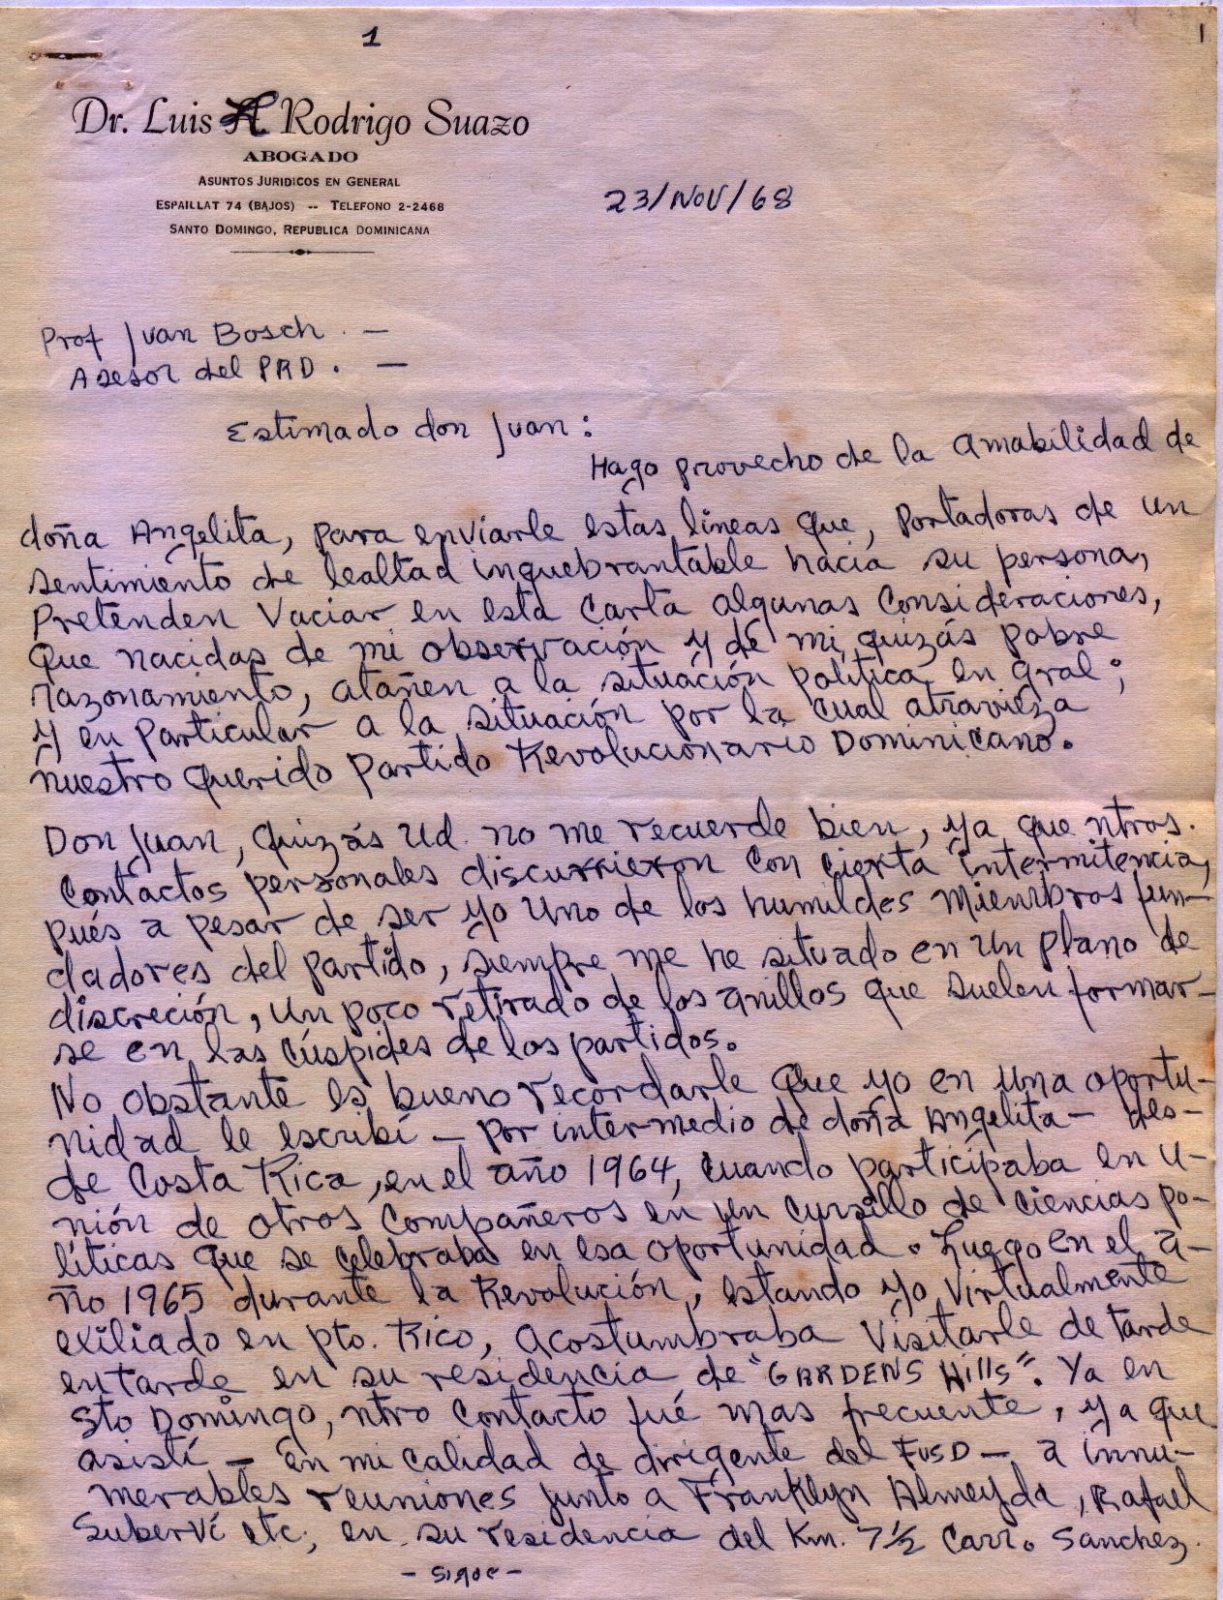 1
1
Dr. Luis A. Rodrigo Suazo
ABOGADO
ASUNTOS JURIDICOS EN GENERAL
ESPAILLAT 74 (BAJOS) -- TELEFONO 2-2468
SANTO DOMINGO, REPUBLICA DOMINICANA
23/NOV/68
Prof Juan Bosch. —
Asesor del PRD. —
Estimado don Juan:
Hago provecho de la amabilidad de
doña Angelita, para enviarle estas líneas que, portadoras de un
sentimiento de lealtad inquebrantable hacia su persona,
pretenden vaciar en esta carta algunas consideraciones,
que nacidas de mi observación y de mi, quizás pobre
razonamiento, atañen a la situación política en gral;
y en particular a la situación por la cual atravieza
nuestro querido Partido Revolucionario Dominicano.
Don Juan, quizás Ud. no me recuerde bien, ya que ntros.
contactos personales discurrieron con cierta intermitencia,
pués a pesar de ser yo uno de los humildes miembros fun-
dadores del partido, siempre me he situado en un plano de
discreción, un poco retirado de los anillos que suelen formar-
se en las cúspides de los partidos.
No obstante es bueno recordarle que yo en una oportu-
nidad le escribí — por intermedio de doña Angelita — des-
de Costa Rica, en el año 1964, cuando participaba en u-
nión de otros compañeros en un cursillo de ciencias po-
líticas que se celebraba en esa oportunidad. Luego en el a-
ño 1965 durante la Revolución, estando yo virtualmente
exiliado en pto. Rico, acostumbraba visitarle de tarde
en tarde en su residencia de "GARDENS Hills". Ya en
Sto Domingo, ntro contacto fué mas frecuente, ya que
asistí — en mi calidad de dirigente del FUSD — a innu-
merables reuniones junto a Franklyn Almeyda, Rafael
Subervi etc, en su residencia del Km. 7½ Carr. Sanchez.
- sigue -